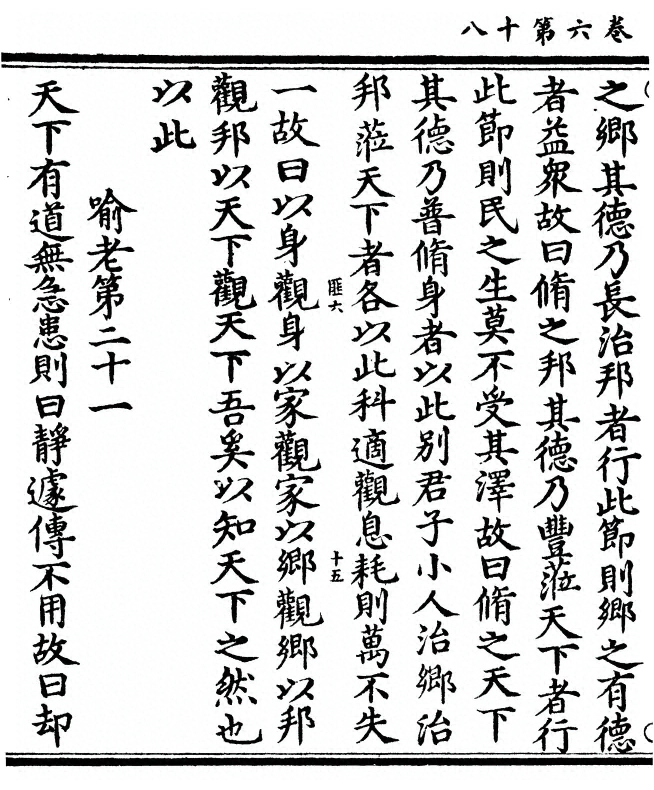 卷六第十八
之鄉其德乃長治邦者行此節則鄉之有德
者益衆故曰脩之邦其德乃豐莅天下者行
此節則民之生莫不受其澤故曰脩之天下
其德乃普脩身者以此别君子小人治鄉治
邦莅天下者各以此科適觀息耗則萬不失
匪六
十五
一故曰以身觀身以家觀家以鄉觀鄉以邦
觀邦以天下觀天下吾奚以知天下之然也
以此
喻老第二十一
天下有道無急患則曰靜遽傳不用故曰却